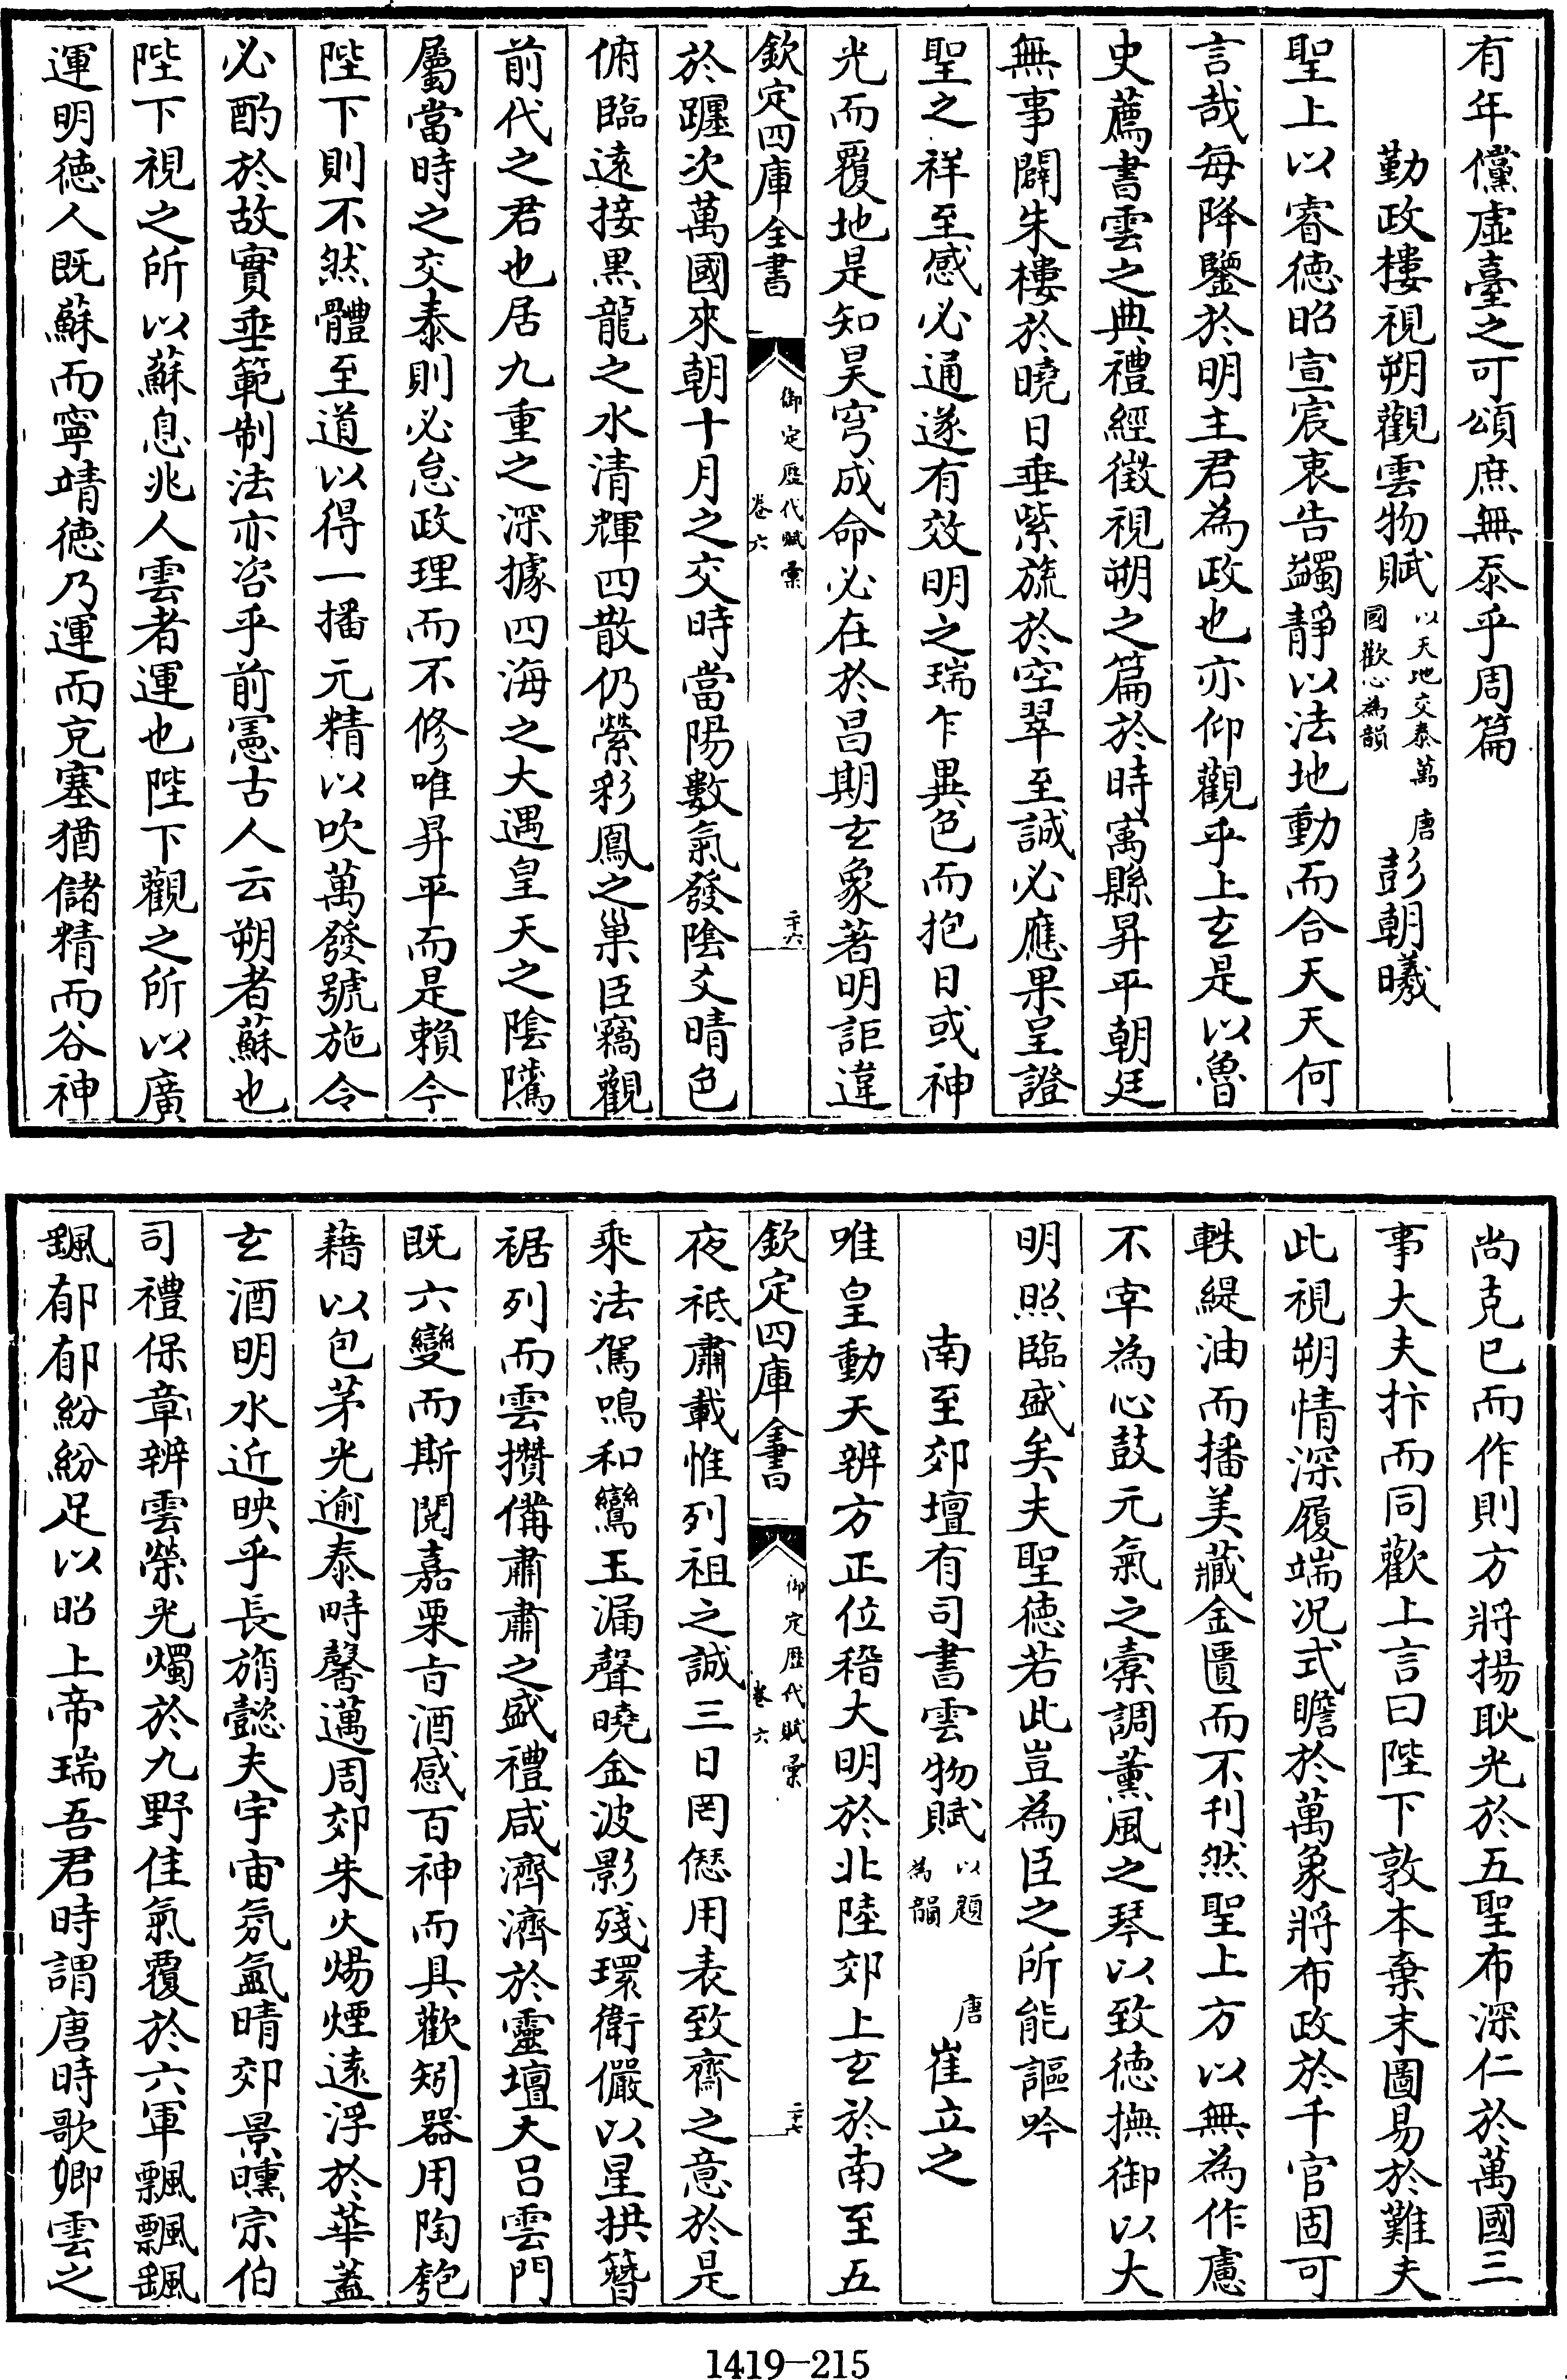 有年儻虛臺之可頌庶無忝乎周篇
勤政樓視朔觀雲物賦以天地交泰萬國歡心為韻 唐彭朝曦
聖上以睿徳昭宣宸衷告蠲靜以法地動而合天天何
言哉每降鑒於明主君為政也亦仰觀乎上玄是以魯
史薦書雲之典禮經徵視朔之篇於時寓縣昇平朝廷
無事闢朱樓於曉日垂紫旒於空翠至誠必應果呈證
聖之祥至感必通遂有效明之瑞乍異色而抱日或神
光而覆地是知昊穹成命必在於昌期玄象著明詎違
欽定四庫全書 御定歴代賦彙卷六 二十六
於躔次萬國來朝十月之交時當陽數氣發陰爻晴色
俯臨遠接黒龍之水清輝四散仍縈彩鳳之巢臣竊觀
前代之君也居九重之深據四海之大遇皇天之陰隲
屬當時之交泰則必怠政理而不修唯昇平而是賴今
陛下則不然體至道以得一播元精以吹萬發號施令
必酌於故實垂範制法亦咨乎前憲古人云朔者蘇也
陛下視之所以蘇息兆人雲者運也陛下觀之所以廣
運明徳人既蘇而寧靖徳乃運而克塞猶儲精而谷神
尚克已而作則方將揚耿光於五聖布深仁於萬國三
事大夫抃而同歡上言曰陛下敦本棄末圖易於難夫
此視朔情深履端况式瞻於萬象將布政於千官固可
軼緹油而播美藏金匱而不刊然聖上方以無為作慮
不宰為心鼓元氣之橐調薰風之琴以致徳撫御以大
明照臨盛矣夫聖徳若此豈為臣之所能謳吟
南至郊壇有司書雲物賦以題為韻 唐崔立之
唯皇動天辨方正位稽大明於北陸郊上玄於南至五
欽定四庫全書 御定歴代賦彙卷六 二十七
夜祗肅載惟列祖之誠三日罔愆用表致齋之意於是
乘法駕鳴和鸞玉漏聲曉金波影殘環衛儼以星拱簪
裾列而雲攢備肅肅之盛禮咸濟濟於靈壇大呂雲門
既六變而斯閱嘉栗㫖酒感百神而具歡矧器用陶匏
藉以包茅光逾泰畤馨邁周郊朱火煬煙遠浮於華蓋
玄酒明水近映乎長旓懿夫宇宙氛氳晴郊景曛宗伯
司禮保章辨雲榮光燭於九野佳氣覆於六軍飄飄颻
颻郁郁紛紛足以昭上帝瑞吾君時謂唐時歌卿雲之
1419-215